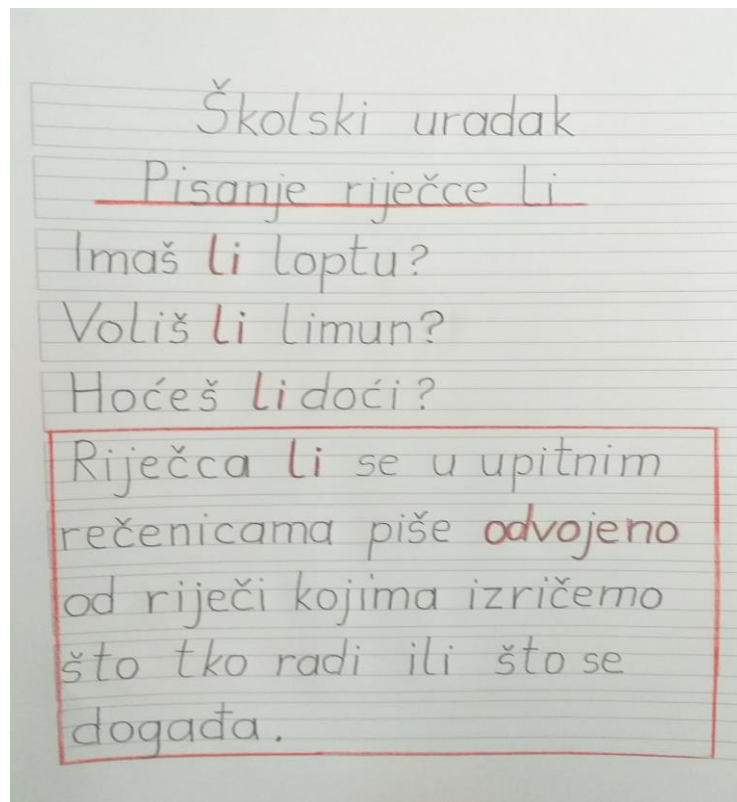 Školski uradak
Pisanje riječce li
Imaš li loptu?
Voliš li limun?
Hoćeš li doći?
Riječca li se u upitnim
rečenicama piše odvojeno
od riječi kojima izričemo
što tko radi ili što se
događa.